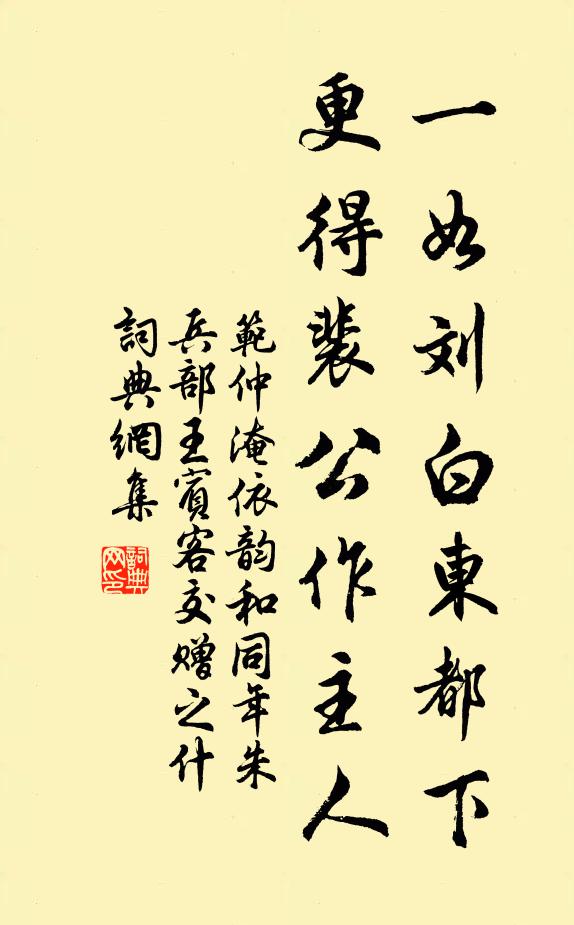 一如刘白東都下
更得裴公作主人
範仲淹依韵和同年朱
兵部王賓客交贈之什
詞典網集
詞典
网印